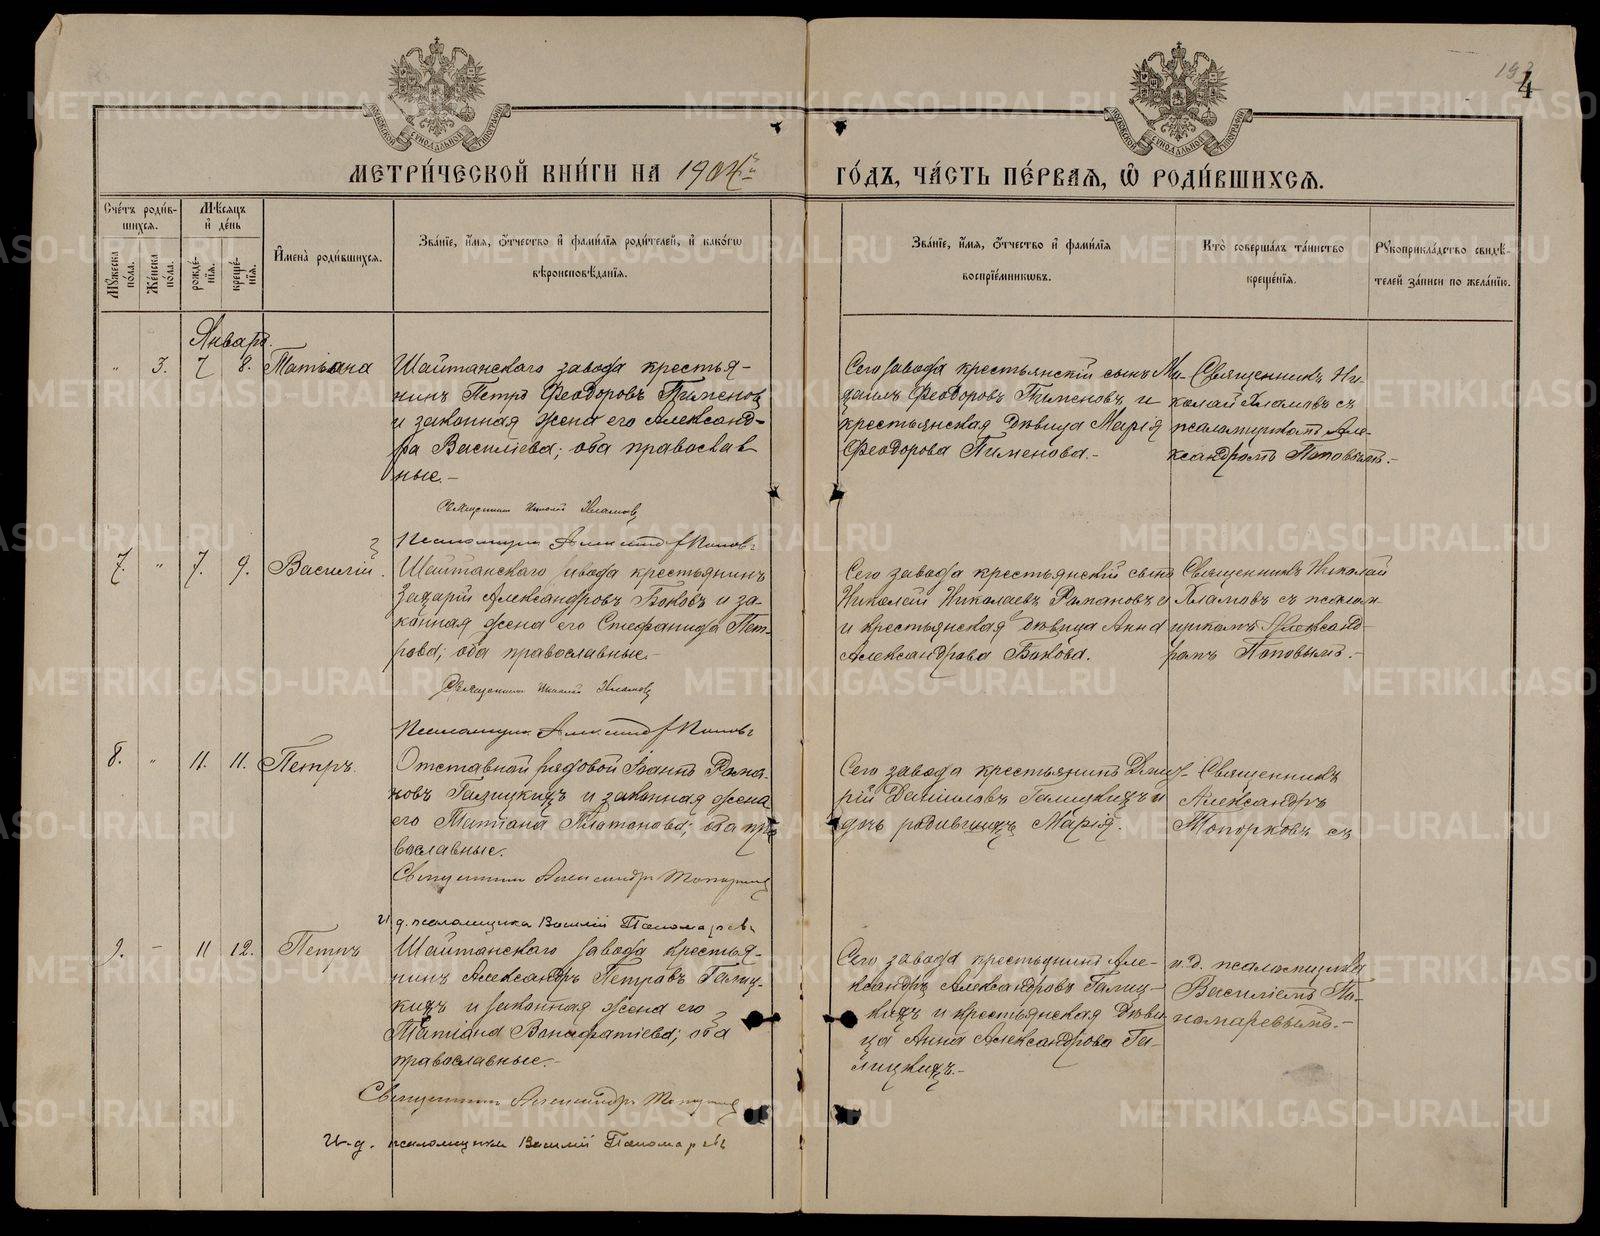 4
МЕТРИ́ЧЕСКОЙ КНИ́ГИ НА 1904й
ГО́ДЪ, ЧА́СТЬ ПЕ́РВАѦ, Ѡ РОДИ́ВШИХСѦ.
Сче́тъ роди́в-
шихсѧ.
Мꙋжеска по́ла.
Же́нска по́ла.
Мѣ́сѧцъ
и҆ де́нь
рожде́-
нїѧ.
креще́-
нїѧ.
И҆мена̀ роди́вшихсѧ.
Зва́нїе, и҆́мѧ, ѻ҆́тчество и҆ фами́лїѧ роди́телей, и҆ како́гѡ
вѣроисповѣ́данїѧ.
Зва́нїе, и҆́мѧ, ѻ҆́тчество и҆ фами́лїѧ
воспрїе́мникѡвъ.
Кто̀ соверша́лъ та́инство
креще́нїѧ.
Рꙋкоприкла́дство свидѣ́-
телей за́писи по жела́нїю.
Января.
" 3. 7 8. Татіана
Шайтанскаго завода крестья-
нинъ Петръ Феодоровъ Пименовъ
и законная жена его Александ-
ра Васильева; оба православ
ные.-
Священникъ Николай Хламовъ
Псаломщик Александр Поповъ
Сего завода крестьянскій сынъ Ми-
хаилъ Феодоровъ Пименовъ и
крестьянская дѣвица Марія
Феодорова Пименова.-
Священникъ Ни-
колай Хламовъ съ
псаломщикомъ Але-
ксандромъ Поповымъ.-
7. " 7. 9. Василій.
Шайтанскаго завода крестьянинъ
Захарій Александровъ Боковъ и за-
конная жена его Стефанида Пет-
рова; оба православные.-
Священникъ Николай Хламовъ
Псаломщик Александр Поповъ
Сего завода крестьянскій сынъ
Николай Николаевъ Романовъ и
и крестьянская дѣвица Анна
Александрова Бокова.
Священникъ Николай
Хламовъ съ псалом-
щикомъ Александ-
ромъ Поповымъ.-
8. " 11. 11. Петръ.
Отставной рядовой Іоаннъ Рома-
новъ Галицкихъ и законная жена
его Татіана Платонова; оба пра
вославные.
Священник Александръ Топорковъ
И. д. псаломщика Василій Пономаревъ
Сего завода крестьянинъ Димит-
рій Даниловъ Галицкихъ и
дчь родившихъ Марія.
Священникъ
Александръ
Топорковъ съ
9. - 11 12. Петръ
Шайтанскаго завода крестья-
нинъ Александръ Петровъ Галиц-
кихъ и законная жена его
Татіана Вонифатіева; оба
православные.-
Священник Александръ Топорковъ
И. д. псаломщика Василій Пономаревъ
Сего завода крестьянинъ Але-
ксандръ Александровъ Галиц-
кихъ и крестьянская дѣви-
ца Анна Александрова Га-
лицкихъ.-
и. д. псаломщика
Василіемъ По-
номаревымъ.-
METRIKI.GASO-URAL.RU